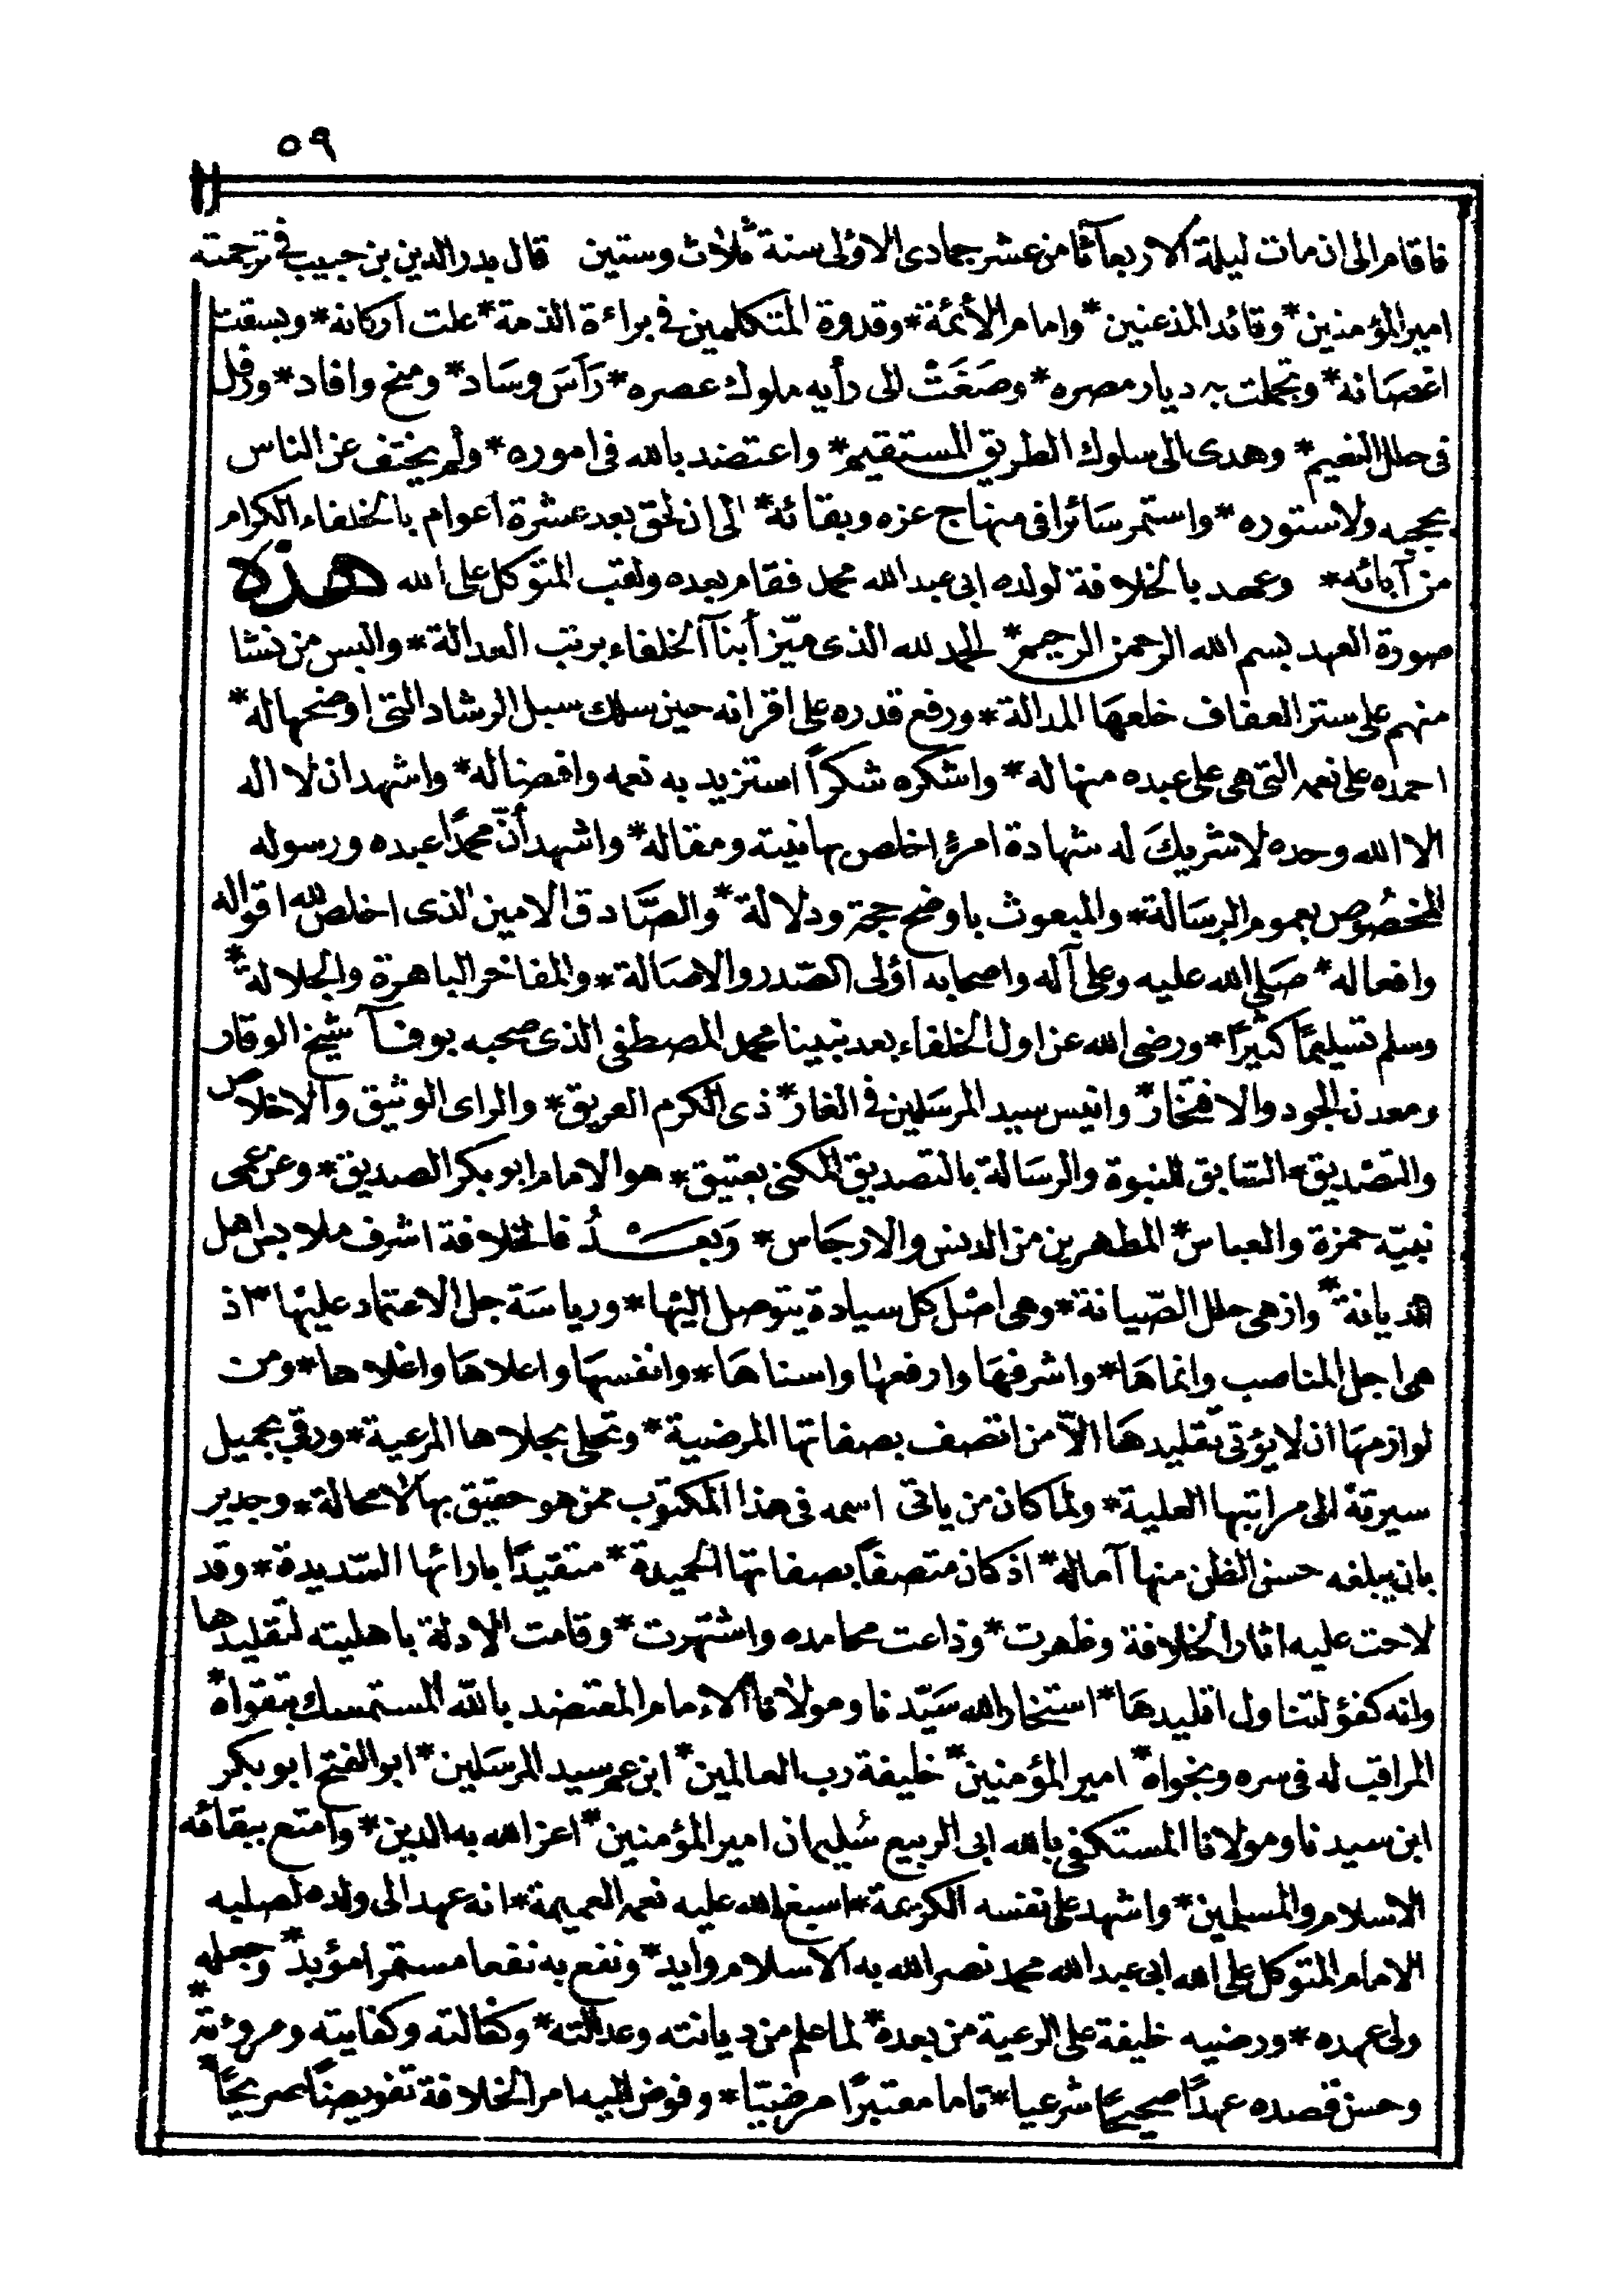 ٥٩
فاقام الى ان مات ليلة الاربعآ ثامن عشر جمادى الاولى سنة ثلاث وستين قال بدر الدين بن حبيب فى ترجمته
امير المؤمنين * وقائد المذعنين * وامام الأئمة * وقدوة المتكلمين فى براءة الذمة * علت اركانه * وبسقت
اغصانه * وتجملت به ديار مصره * وصَغَتْ الى رأيه ملوك عصره * رَآسَ وسَاد * ومنح وافاد * ورفل
فى حلل النعيم * وهدى الى سلوك الطريق المستقيم * واعتضد بالله فى اموره * ولم يختف عن الناس
بحجبه ولا ستوره * واستمر سَائرا فى منهاج عزه وبقائه * الى ان لحق بعد عشرة اعوام بالخلفاء الكرام
من آبائه * وعهد بالخلافة لولده ابى عبد الله محمد فقام بعده ولقب المتوكل على الله هذه
صورة العهد بسم الله الرحمن الرحيم * الحمد لله الذى ميّز أبنآ الخلفاء برتب العدالة * والبس من نشا
منهم على ستر العفاف خلعها المدالة * ورفع قدره على اقرانه حين سلك سبل الرشاد التى اوضحها له *
احمده على نعمه التى هى على عبده منهاله * واشكره شكراً استزيد به نعمه وافضاله * واشهد ان لا اله
الا الله وحده لا شريكَ له شهادة امرئٍ اخلص بها نيته ومقاله * واشهد أنّ محمدًا عبده ورسوله
المخصُوص بعموم الرسَالة * والمبعوث باوضح حجة ودلالة * والصَّادق الامين الذى اخلص لله اقواله
وافعاله * صَلى الله عليه وعلى آله واصحابه اولى الصّدر والاصَالة * والمفاخر الباهرة والجلالة *
وسلم تسليمًا كثيرًا * ورضى الله عن اول الخلفاء بعد نبينا محمد المصطفى الذى صحبه بوفآ شيخ الوقار
ومعدن الجود والافتخار * وانيس سيد المرسَلين فى الغار * ذى الكرم العريق * والراى الوثيق والاخلاص
والتصْديق * السّابق للنبوة والرسَالة بالتصديق المكنى بعتيق * هو الامام ابو بكر الصديق * وعن عمى
نبيّه حمزة والعباس * المطهرين من الدنس والارجَاس * وَبعــدُ فالخلافة اشرف ملابس اهل
الديانة * وازهى حلل الصّيانة * وهى اصْل كل سيادة يتوصل اليْها * ورياسَة جل الاعتماد عليْها * اذ
هى اجل المناصب وانماهَا * واشرفهَا وارفعها واسناهَا * وانفسهَا واعلاهَا واغلاها * ومن
لوازمهَا ان لا يؤتى تقليدهَا الاّ من اتصف بصفاتها المرضية * وتحلى بحلاها المرعية * ورقى بجميل
سيرته الى مراتبها العلية * ولما كان من ياتى اسمه فى هذا المكتوب ممن هو حقيق بها لامحالة * وجدير
بان يبلغه حسن الظن منها آماله * اذ كان متصفاً بصفاتها الحميدة * متقيدًا بارائها السّديدة * وقد
لاحت عليه اثار الخلافة وظهرت * وذاعت محامده واشتهرت * وقامت الادلة باهليته لتقليدها
وانه كفؤ لتناول اقليدهَا * استخار الله سَيّدنا ومولانا الامام المعتضد بالله المستمسك بتقواه *
المراقب له فى سره ونجواه * امير المؤمنين * خليفة رب العالمين * ابن عم سيد المرسَلين * ابو الفتح ابو بكر
ابن سيدنا ومولانا المستكفى بالله ابى الربيع سُليمان امير المؤمنين * اعز الله به الدين * وامتع ببقائه
الاسلام والمسلمين * واشهد على نفسه الكريمة * اسبغ الله عليه نعمه العميمة * انه عهد الى ولده لصلبه
الامام المتوكل على الله ابى عبد الله محمد نصر الله به الاسلام وايد * ونفع به نفعا مستمرا مؤبد * وجعله
ولى عهده * ورضيه خليفة على الرعية من بعده * لما علم من ديانته وعدالته * وكفالته وكفايته ومروءته *
وحسن قصده عهدًا صحيحًا شرعيا * تاما معتبرًا مرضيّا * وفوض اليه امر الخلافة تفويضًا صريحًا *